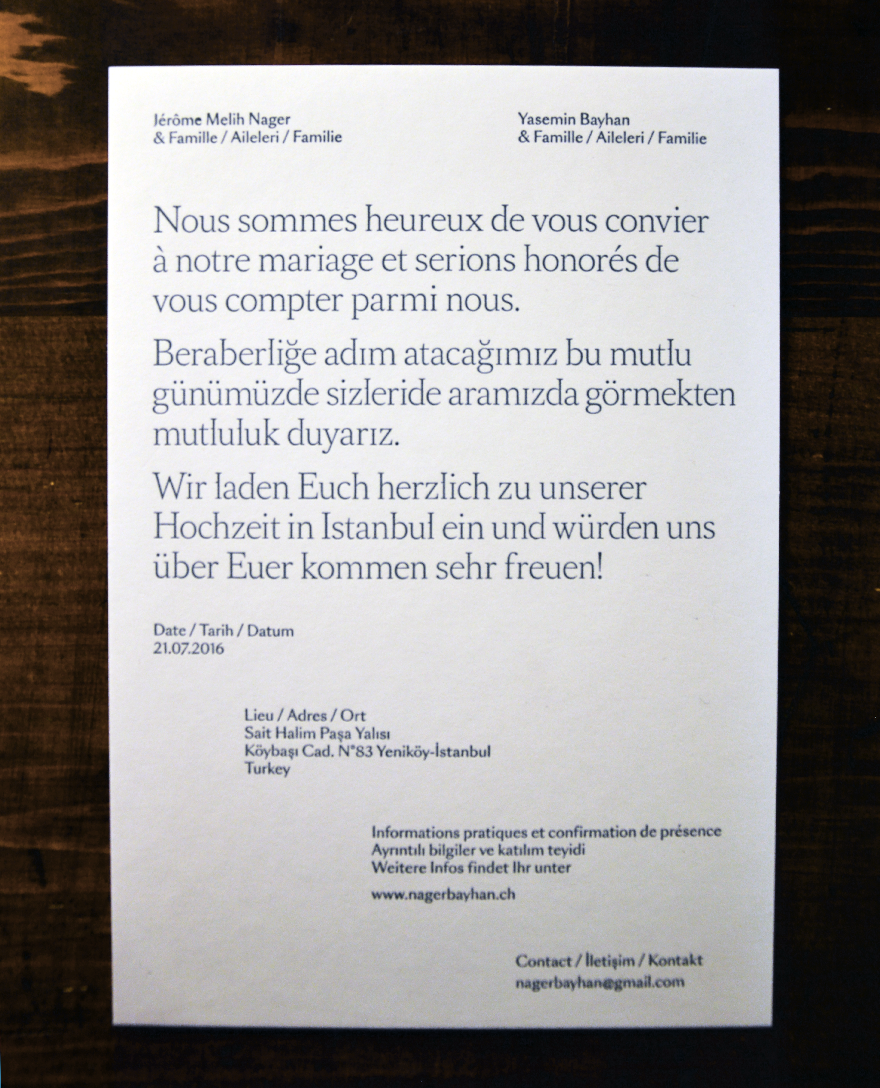 Jérôme Melih Nager
& Famille / Aileleri / Familie
Yasemin Bayhan
& Famille / Aileleri / Familie
Nous sommes heureux de vous convier
à notre mariage et serions honorés de
vous compter parmi nous.
Beraberliğe adım atacağımız bu mutlu
günümüzde sizleride aramızda görmekten
mutluluk duyarız.
Wir laden Euch herzlich zu unserer
Hochzeit in Istanbul ein und würden uns
über Euer kommen sehr freuen!
Date / Tarih / Datum
21.07.2016
Lieu / Adres / Ort
Sait Halim Paşa Yalısı
Köybaşı Cad. N°83 Yeniköy-İstanbul
Turkey
Informations pratiques et confirmation de présence
Ayrıntılı bilgiler ve katılım teyidi
Weitere Infos findet Ihr unter
www.nagerbayhan.ch
Contact / İletişim / Kontakt
nagerbayhan@gmail.com